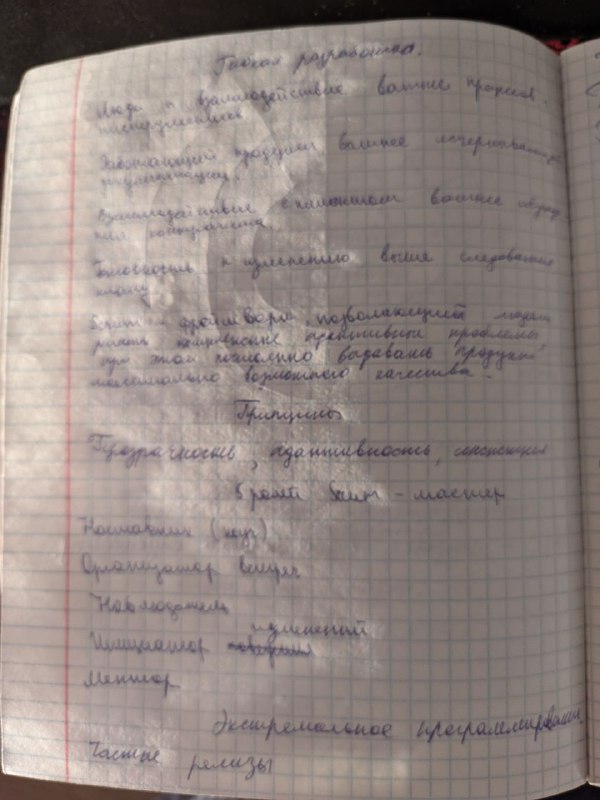 Гибкая разработка.
Люди и взаимодействие важнее процесов.
инструментов
Работающий продукт важнее исчерпывающей
документации.
Взаимодействие с клиентом важнее
контракта.
Готовность к изменению выше следования
плану
фреймворк, позволяющий людям
решать адаптивные проблемы
при этом выдавать продукт
максимально возможного качества.
Принципы
Прозрачность, адаптивность, инспекция
8 ролей - мастер
Наставник (коуч)
Организатор встреч
Наблюдатель
изменений
Инициатор
Ментор
Экстремальное программирование.
Частые релизы